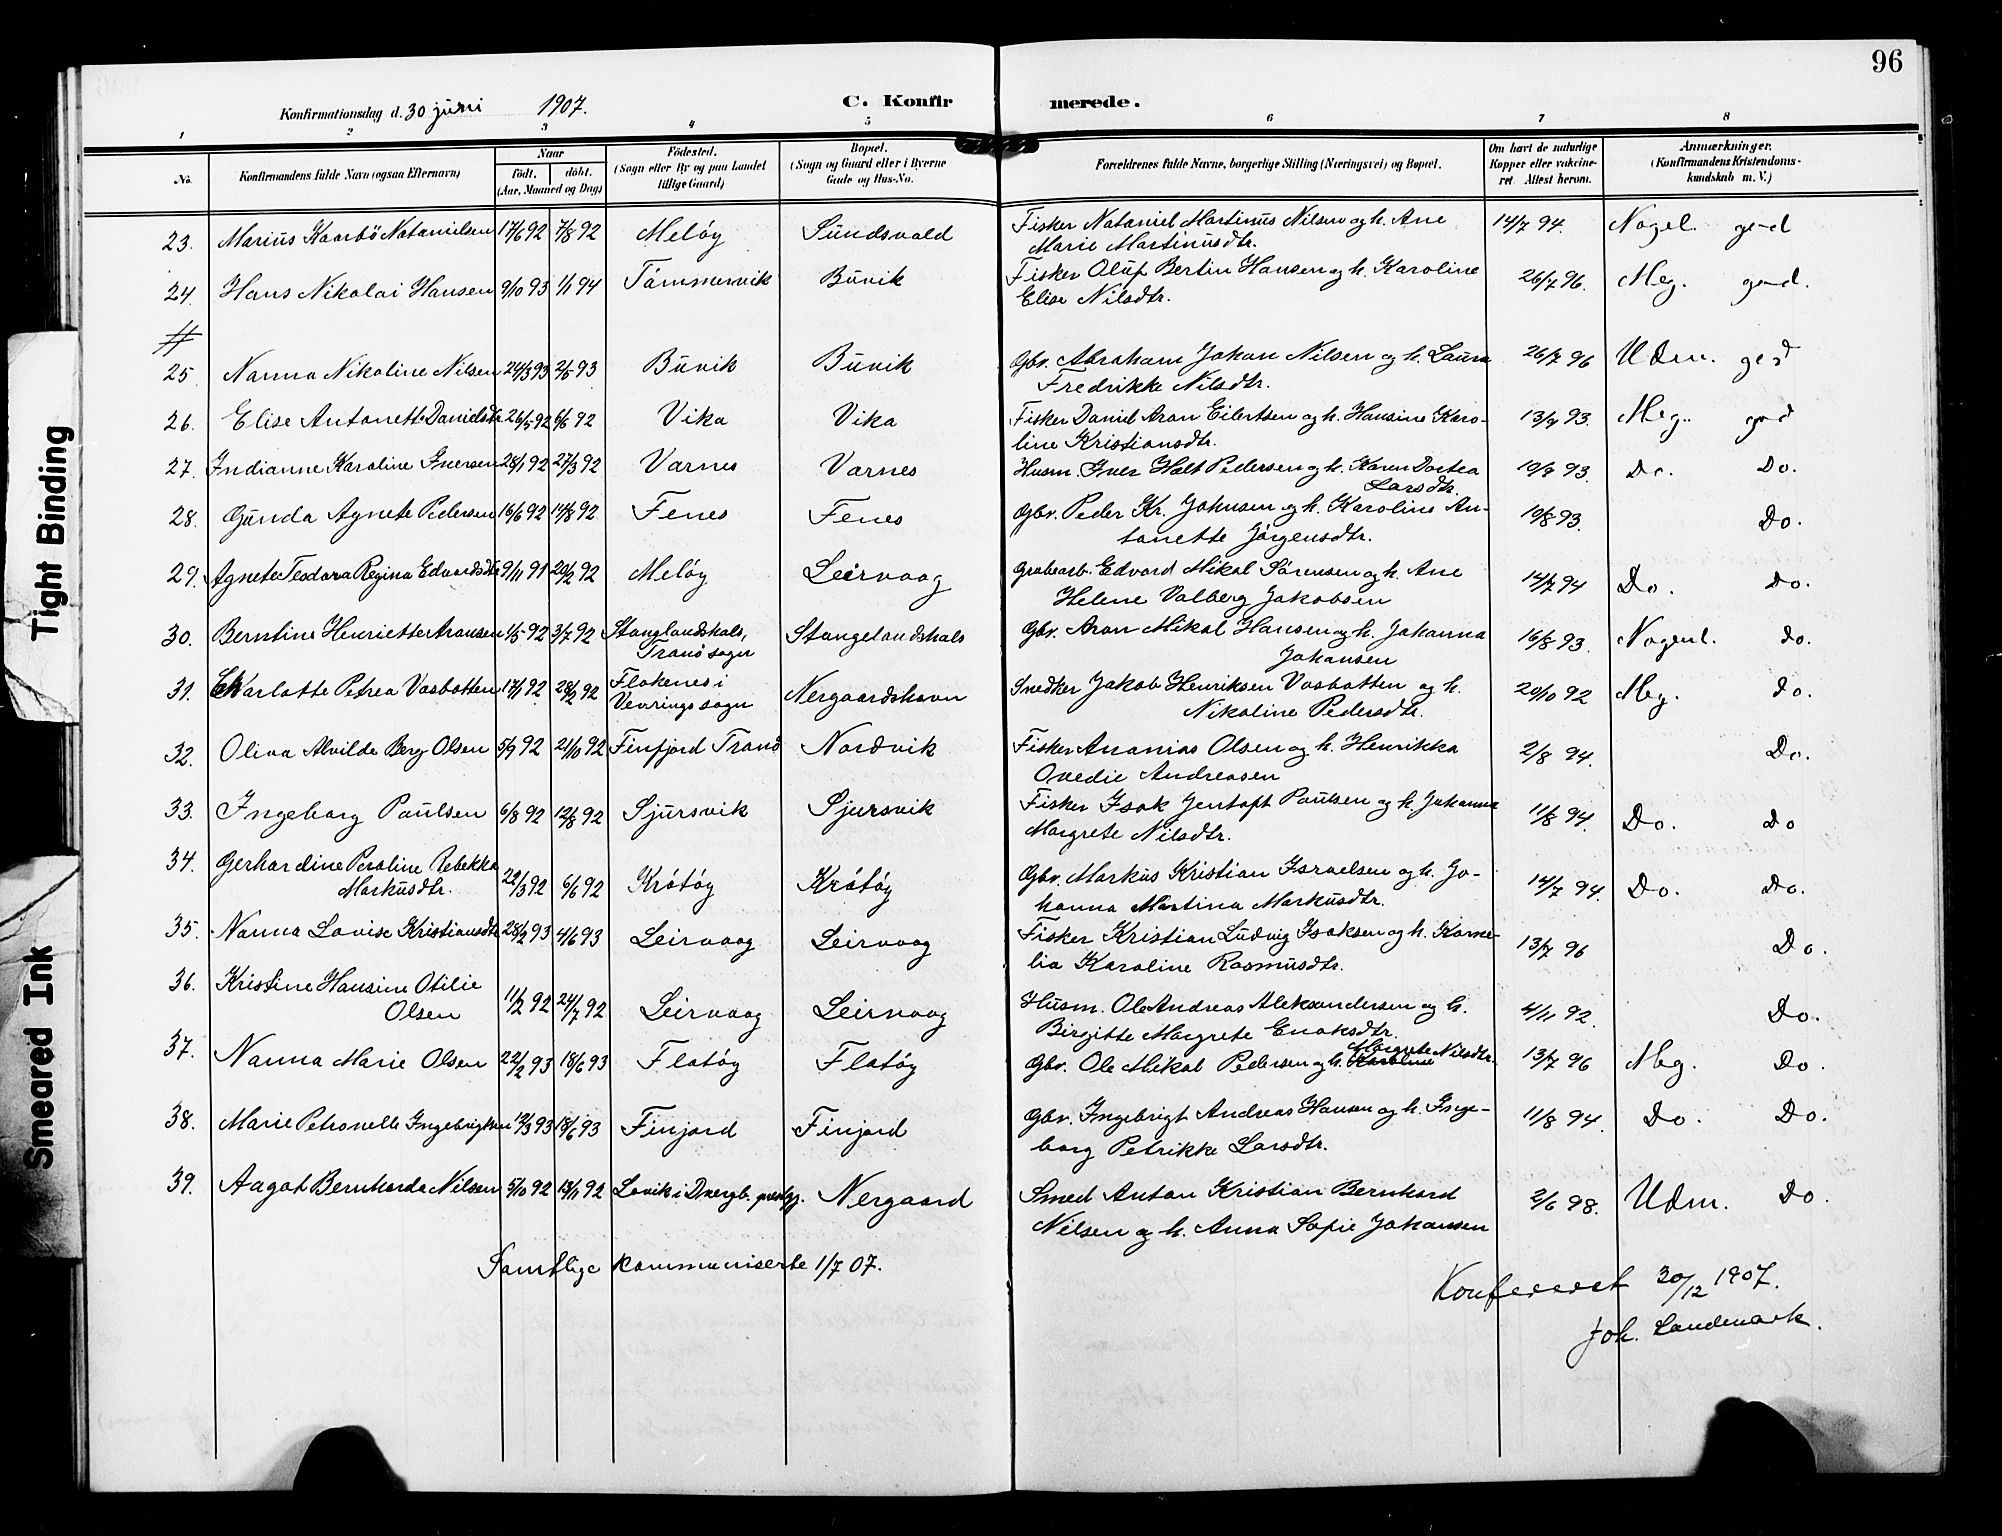 96
Konfirmationsdag d. 30 juni 1907.
C. Konfirmerede.
1 2 3 4 5 6 7 8
No. Konfirmandens fulde Navn (ogsaa Efternavn) Naar født. døbt. (Aar, Maaned og Dag) Födested. (Sogn eller By og paa Landet tillige Gaard) Bopæl. (Sogn og Gaard eller i Byerne Gade og Hus-No. Forældrenes fulde Navne, borgerlige Stilling (Næringsvei) og Bopæl. Om havt de naturlige Kopper eller vakcineret Attest herom. Anmærkninger. (Konfirmandens Kristendomskundskab m. V.)
23. Marius Kaarbö Natanielsen 17/6 92 7/8 92 Melöy Sundsvold Fisker Nataniel Martinus Nilsen og h. Ane 14/7 94. Nogel. god
Marie Martinusdtr.
24. Hans Nikolai Hansen 9/10 93 1/1 94 Tömmervik Buvik Fisker Oluf Bertin Hansen og h. Karoline 26/7 96. Meg. god.
Elise Nilsdtr.
#
25. Nanna Nikoline Nilsen 24/3 93 2/5 93 Buvik Buvik Gbr. Abraham Johan Nilsen og h. Laura 26/7 96 Udm. god
Fredrikke Nilsdtr.
26. Elise Antonette Danielsdtr. 26/5 92 6/6 92 Vika Vika Fisker Daniel Aron Eilertsen og h. Hansine Karo- 13/7 93. Meg. god
line Kristiansdtr.
27. Indianne Karoline Iversen 28/1 92 27/3 92 Varnes Varnes Husm. Iver Holt Pedersen og h. Karen Dortea 19/7 93. Do. Do.
Larsdtr.
28. Gunda Agnete Pedersen 16/6 92 14/8 92 Fenes Fenes Gbr. Peder Kr. Johnsen og h. Karoline An- 10/8 93. Do.
tonette Jörgensdtr.
29. Agnete Teodora Regina Edvardsdtr 9/11 91 20/2 92 Melöy Leirvaag Grubearb. Edvard Mikal Sørensen og h. Ane 14/7 94 Do. Do.
Helene Valberg Jakobsen
30. Berntine Henriette Aronsen 1/5 92 3/7 92 Stanglandshals, Tranö sogn Stangelandshals Gbr. Aron Mikal Hansen og h. Johanna 16/8 93. Nogenl. do.
Johansen
31. Karlotte Petrea Vasbotten 17/1 92 28/2 92 Flokenes i Vevrings sogn Nergaardshavn Snedker Jakob Henriksen Vasbotten og h. 20/10 92 Meg. do.
Nikoline Pedersdtr.
32. Oliva Alvilde Berg Olsen 5/9 92 21/10 92 Finfjord Tranö Nordvik Fisker Ananias Olsen og h. Henrikka 2/8 94. Do.
Ovedie Andreasen
33. Ingeborg Paulsen 6/8 92 12/8 92 Sjursvik Sjursvik Fisker Isak Jentoft Paulsen og h. Johanna 11/8 94. Do. Do
Margrete Nilsdtr.
34. Gerhardine Peroline Rebekka Markusdtr. 22/3 92 6/6 92 Krötöy Krötöy Gbr. Markus Kristian Israelsen og h. Jo- 14/7 94. Do. Do.
hanna Martina Markusdtr.
35. Nanna Lovise Kristiansdtr 28/2 93 4/6 93 Leirvaag Leirvaag Fisker Kristian Ludvig Isaksen og h. Korne- 13/7 96 Do.
lia Karoline Rasmusdtr.
36. Kristine Hansine Otilie Olsen 11/2 92 24/7 92 Leirvaag Leirvaag Husm. Ole Andreas Aleksandersen og h. 4/11 92. Do.
Birgitte Margrete Enoksdtr.
37. Nanna Marie Olsen 22/2 93 18/6 93 Flatöy Flatöy Gbr. Ole Mikal Pedersen og h. Karoline Margrete Nilsdtr. 13/7 96 Meg. Do.
38. Marie Petronelle Ingebrigtsen 12/3 93 18/6 93 Finjord Finjord Gbr. Ingebrigt Andreas Hansen og h. Inge- 11/8 94. Do. Do.
borg Petrikke Larsdtr.
39. Aagot Bernharda Nilsen 5/10 92 13/11 92 Lavik i Dvergb. prestgj. Nergaard Smed Anton Kristian Bernhard 2/6 98. Udm. Do.
Nilsen og h. Anna Sofie Johansen
Samtlige kommuniserte 1/7 07.
Konfereret 30/12 1907.
Joh. Landmark.
Tight Binding
Smeared Ink